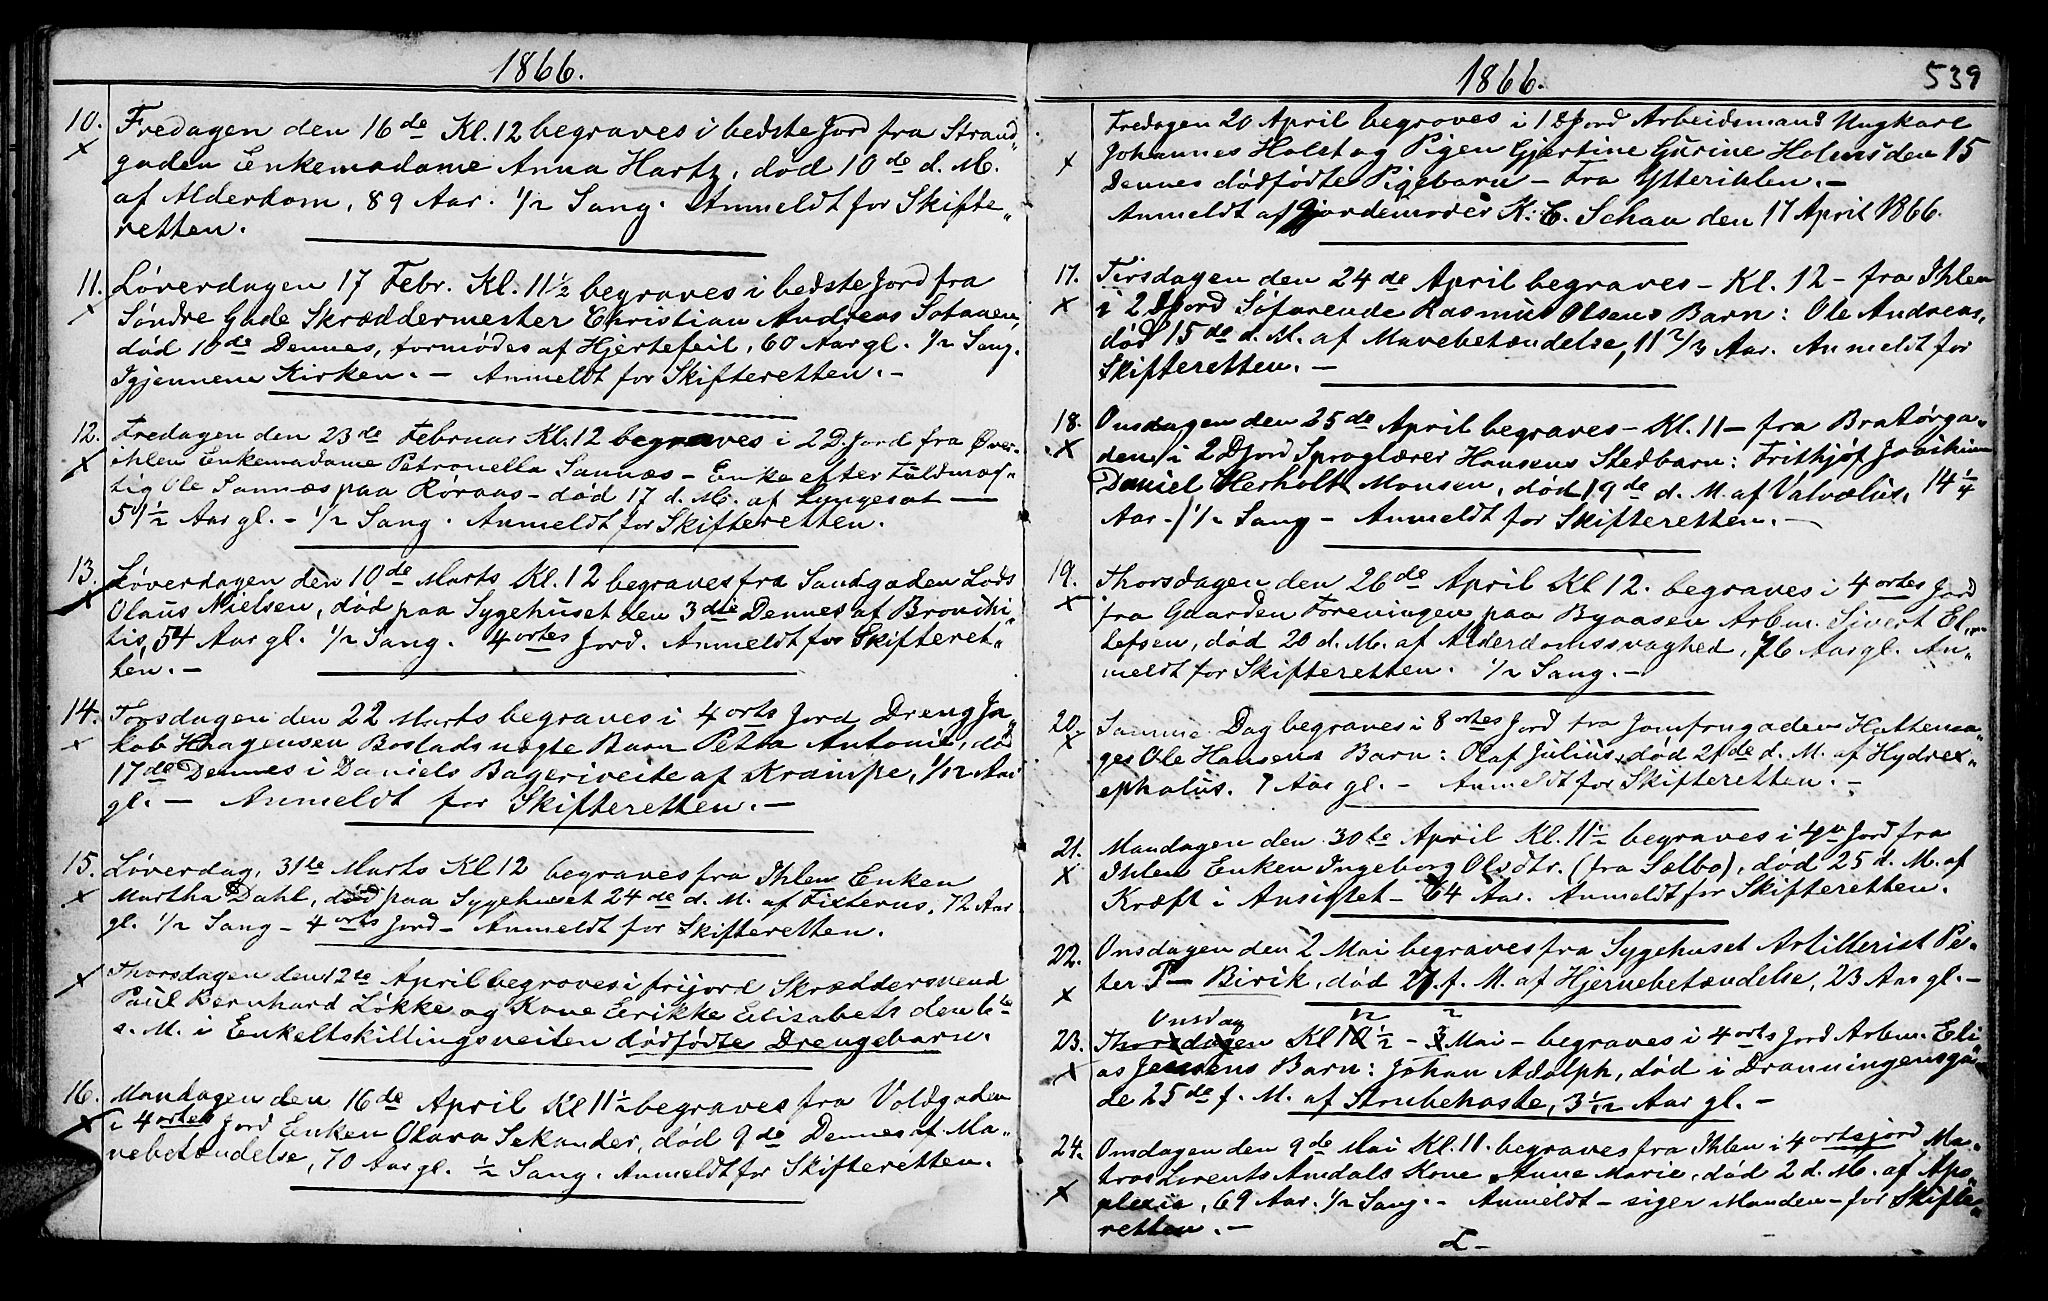 1866.
10. Fredagen den 16de Kl. 12 begraves i bedste Jord fra Strand„
gaden Enkemadame Anna Hartz, død 10de d. M.
af Alderdom, 89 Aar. 1/2 Sang. Anmeldt for Skifte„
retten.
11. Løverdagen 17 Febr. Kl. 11 1/2 begraves i bedste Jord fra
Søndre Gade Skræddermester Christian Andreas
død 10de Dennes, formodes af Hjertefeil, 60 Aar gl. 1/2 Sang.
Igjennem Kirken. — Anmeldt for Skifteretten. —
12. Fredagen den 23de Februar Kl. 12 begraves i 2 D. Jord fra Øvre-
ihlen Enkemadame Petronella Sannæs — Enke efter Fuldmæg-
tig Ole Sannæs paa Røraas — død 17 d. M. af Lungesot —
51 1/2 Aar gl. — 1/2 Sang. Anmeldt for Skifteretten.
13. Løverdagen den 10de Marts Kl. 12 begraves fra Sandgaden Lods
Olaus Nielsen, død paa Sygehuset den 3die Dennes af Bronchi„
tis, 54 Aar gl. 1/2 Sang. 4 ortes Jord. Anmeldt for Skifteret„
ten. —
14. Torsdagen den 22 Marts begraves i 4 orts Jord Dreng Ja„
kob Haagensen Bostads uægte Barn Petra Antonie, død
17de Dennes i Daniels Bageriveite af Krampe, 1/12 Aar
gl. — Anmeldt for Skifteretten. —
15. Løverdag, 31te Marts Kl 12 begraves fra Ihlen Enken
Martha Dahl, død paa Sygehuset 24de d. M. af Ixterus, 72 Aar
gl. 1/2 Sang — 4 orts Jord — Anmeldt for Skifteretten.
Thorsdagen den 12te April begraves i frijord Skræddersvend
Paul Bernhard Løkke og Kone Erikke Elisabeth den 6te
s. M. i Enkeltskillingsveiten dødfødte Drengebarn.
16. Mandagen den 16de April Kl 11 1/2 begraves fra Voldgaden
i 4 ortes Jord Enken Olava Sekander, død 9de Dennes af Ma„
vebetændelse, 70 Aar gl. 1/2 Sang. Anmeldt for Skifteretten.
1866.
539
Fredagen 20 April begroves i 1 D Jord Arbeidsmand Ungkarl
Johannes Holst og Pigen Gjertine Gurine Holms den 15
Dennes dødfødte Pigebarn — Fra Ytteriklen. —
Anmeldt af Gjordemoder K. C. Schau den 17 April 1866.
17. Tirsdagen den 24de April begraves — Kl. 12 — fra Ihlen
i 2 D Jord Søfarende Rasmus Olsens Barn: Ole Andreas,
død 15de d. M. af Mavebetændelse, 11 2/3 Aar. Anmeldt for
Skifteretten. —
18. Onsdagen den 25de April begraves — Kl. 11 — fra Bratørga„
den i 2 D Jord Sproglærer Hansens Stedbarn: Frithjof Joachim
Daniel Herholdt Monsen, død 19de d. M. af Valvælus, 14 1/4
Aar. — 1/2 Sang — Anmeldt for Skifteretten. —
19. Thorsdagen den 26de April Kl 12. begraves i 4 ortes Jord
fra Gaarden Foreningen paa Byaasen Arbm. Sivert El„
lefsen, død 20 d. M. af Alderdomssvaghed, 76 Aar gl. An„
meldt for Skifteretten. 1/2 Sang. —
20. Samme Dag begraves i 8 ortes Jord fra Jomfrugaden Hattema„
ger Ole Hansens Barn: Olaf Julius, død 21de d. M. af Hydrox„
ephalus. 7 Aar gl. — Anmeldt for Skifteretten. —
21. Mandagen den 30te April Kl. 11 1/2 begraves i 4 o Jord fra
Ihlen Enken Ingeborg Olsdtr. (fra Sælbo), død 25 d. M. af
Kræft i Ansigtet — 64 Aar. Anmeldt for Skifteretten.
22. Onsdagen den 2 Mai begraves fra Sygehuset Artillerist Pe„
ter P — Birik, død 27. f. M. af Hjernebetændelse, 23 Aar gl. —
Onsdag 12 2
23. Thorsdagen Kl 10 1/2 — 3 Mai — begraves i 4 orts Jord Arbm. Eli„
as Jensens Barn: Johan Adolph, død i Dronningensga„
de 25de f. M. af Strubehoste, 3 1/12 Aar gl. —
24. Onsdagen den 9de Mai Kl. 11. begraves fra Ihlen i 4 ortesjord Ma„
tros Lorents Amdals Kone Anne Marie, død 2 d. M. af Apo„
plexia, 69 Aar. 1/2 Sang. — Anmeldt — siger Manden — for Skifte„
retten. —